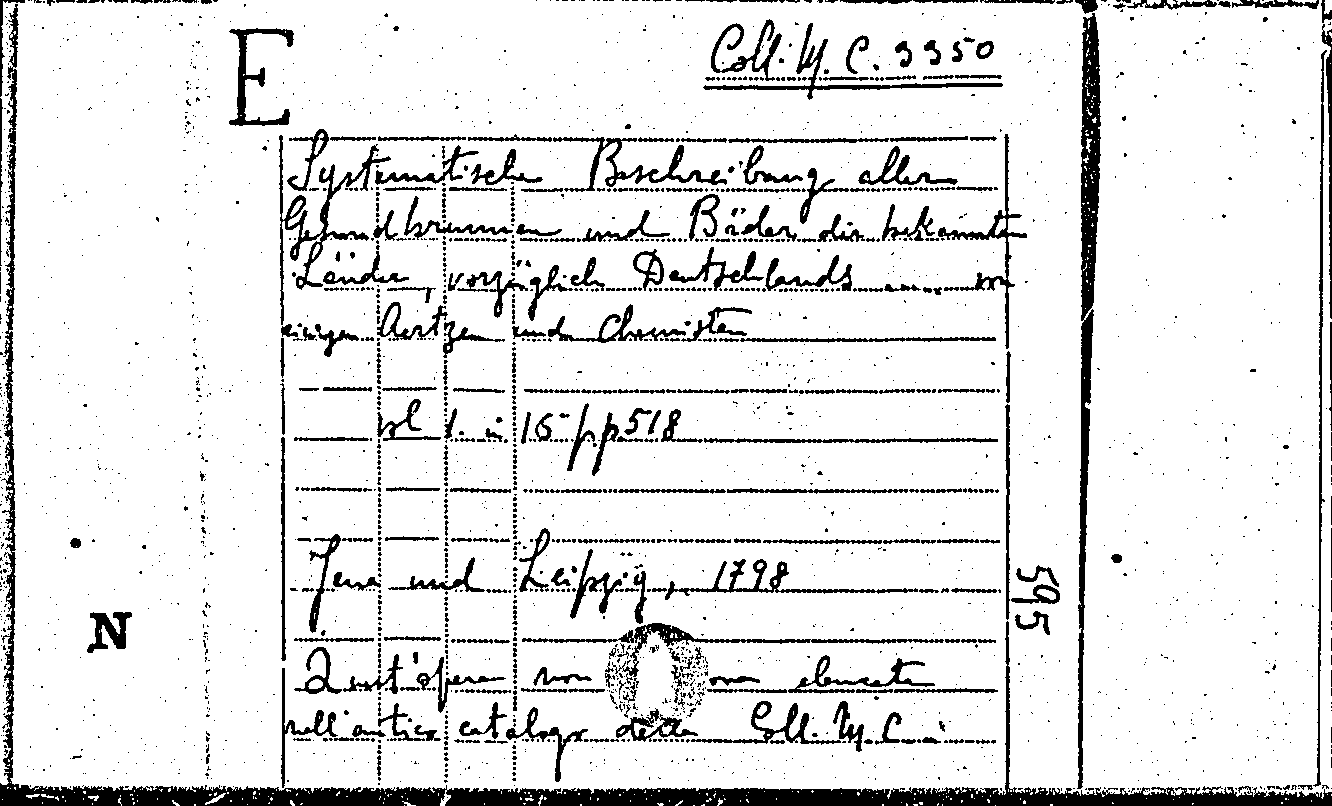 E
Coll. M. C. 3350
Systematische Beschreibung aller
Gesundbrunnen und Bäder der bekannten
Länder, vorzüglich Deutschlands .... von
einigen Aertzen und Chemisten
vol 1. in 16 pp 518
Jena und Leipzig, 1798
595
N
Quest'opera non elencata
nell'antico catalogo della Coll. M. C.